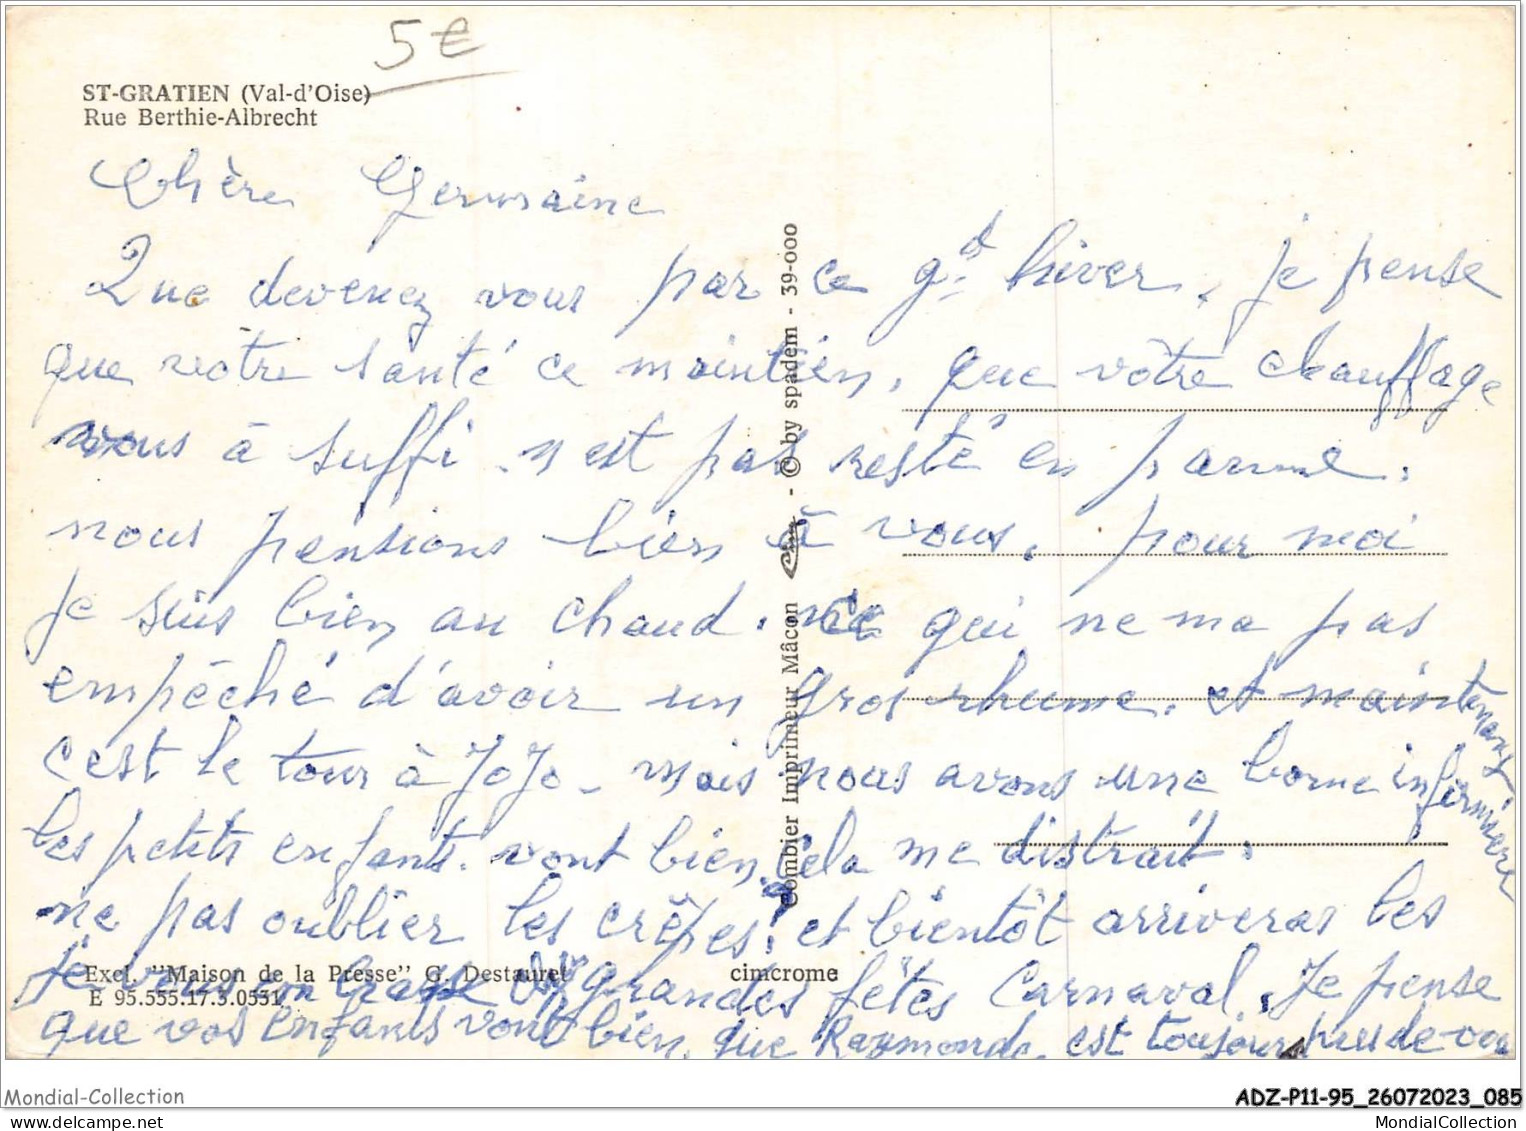 5€
ST-GRATIEN (Val-d'Oise)
Rue Berthie-Albrecht
Chère Germaine
Que devenez vous par ce gd hiver, je pense
que vôtre santé ce maintien, que vôtre chauffage
vous à suffi n est pas resté en panne.
nous pensions bien à vous. pour moi
je suis bien au chaud. ce qui ne ma pas
empêché d'avoir un gros rhume. et maintenant
c'est le tour à JoJo - mais nous avons une bonne infirmierre
les petits enfants vont bien. Cela me distrait.
ne pas oublier les crêpes! et bientôt arriveras les
grandes fêtes Carnaval. Je pense
je vous embrasse
que vos enfants vont bien, que Raymonde est toujours près de vous
Combier Imprimeur Mâcon Cim - © by spadem - 39-000
Excl. "Maison de la Presse" G. Destauret
E 95.555.17.3.0531
cimcrome
Mondial-Collection
ADZ-P11-95_26072023_085
MondialCollection